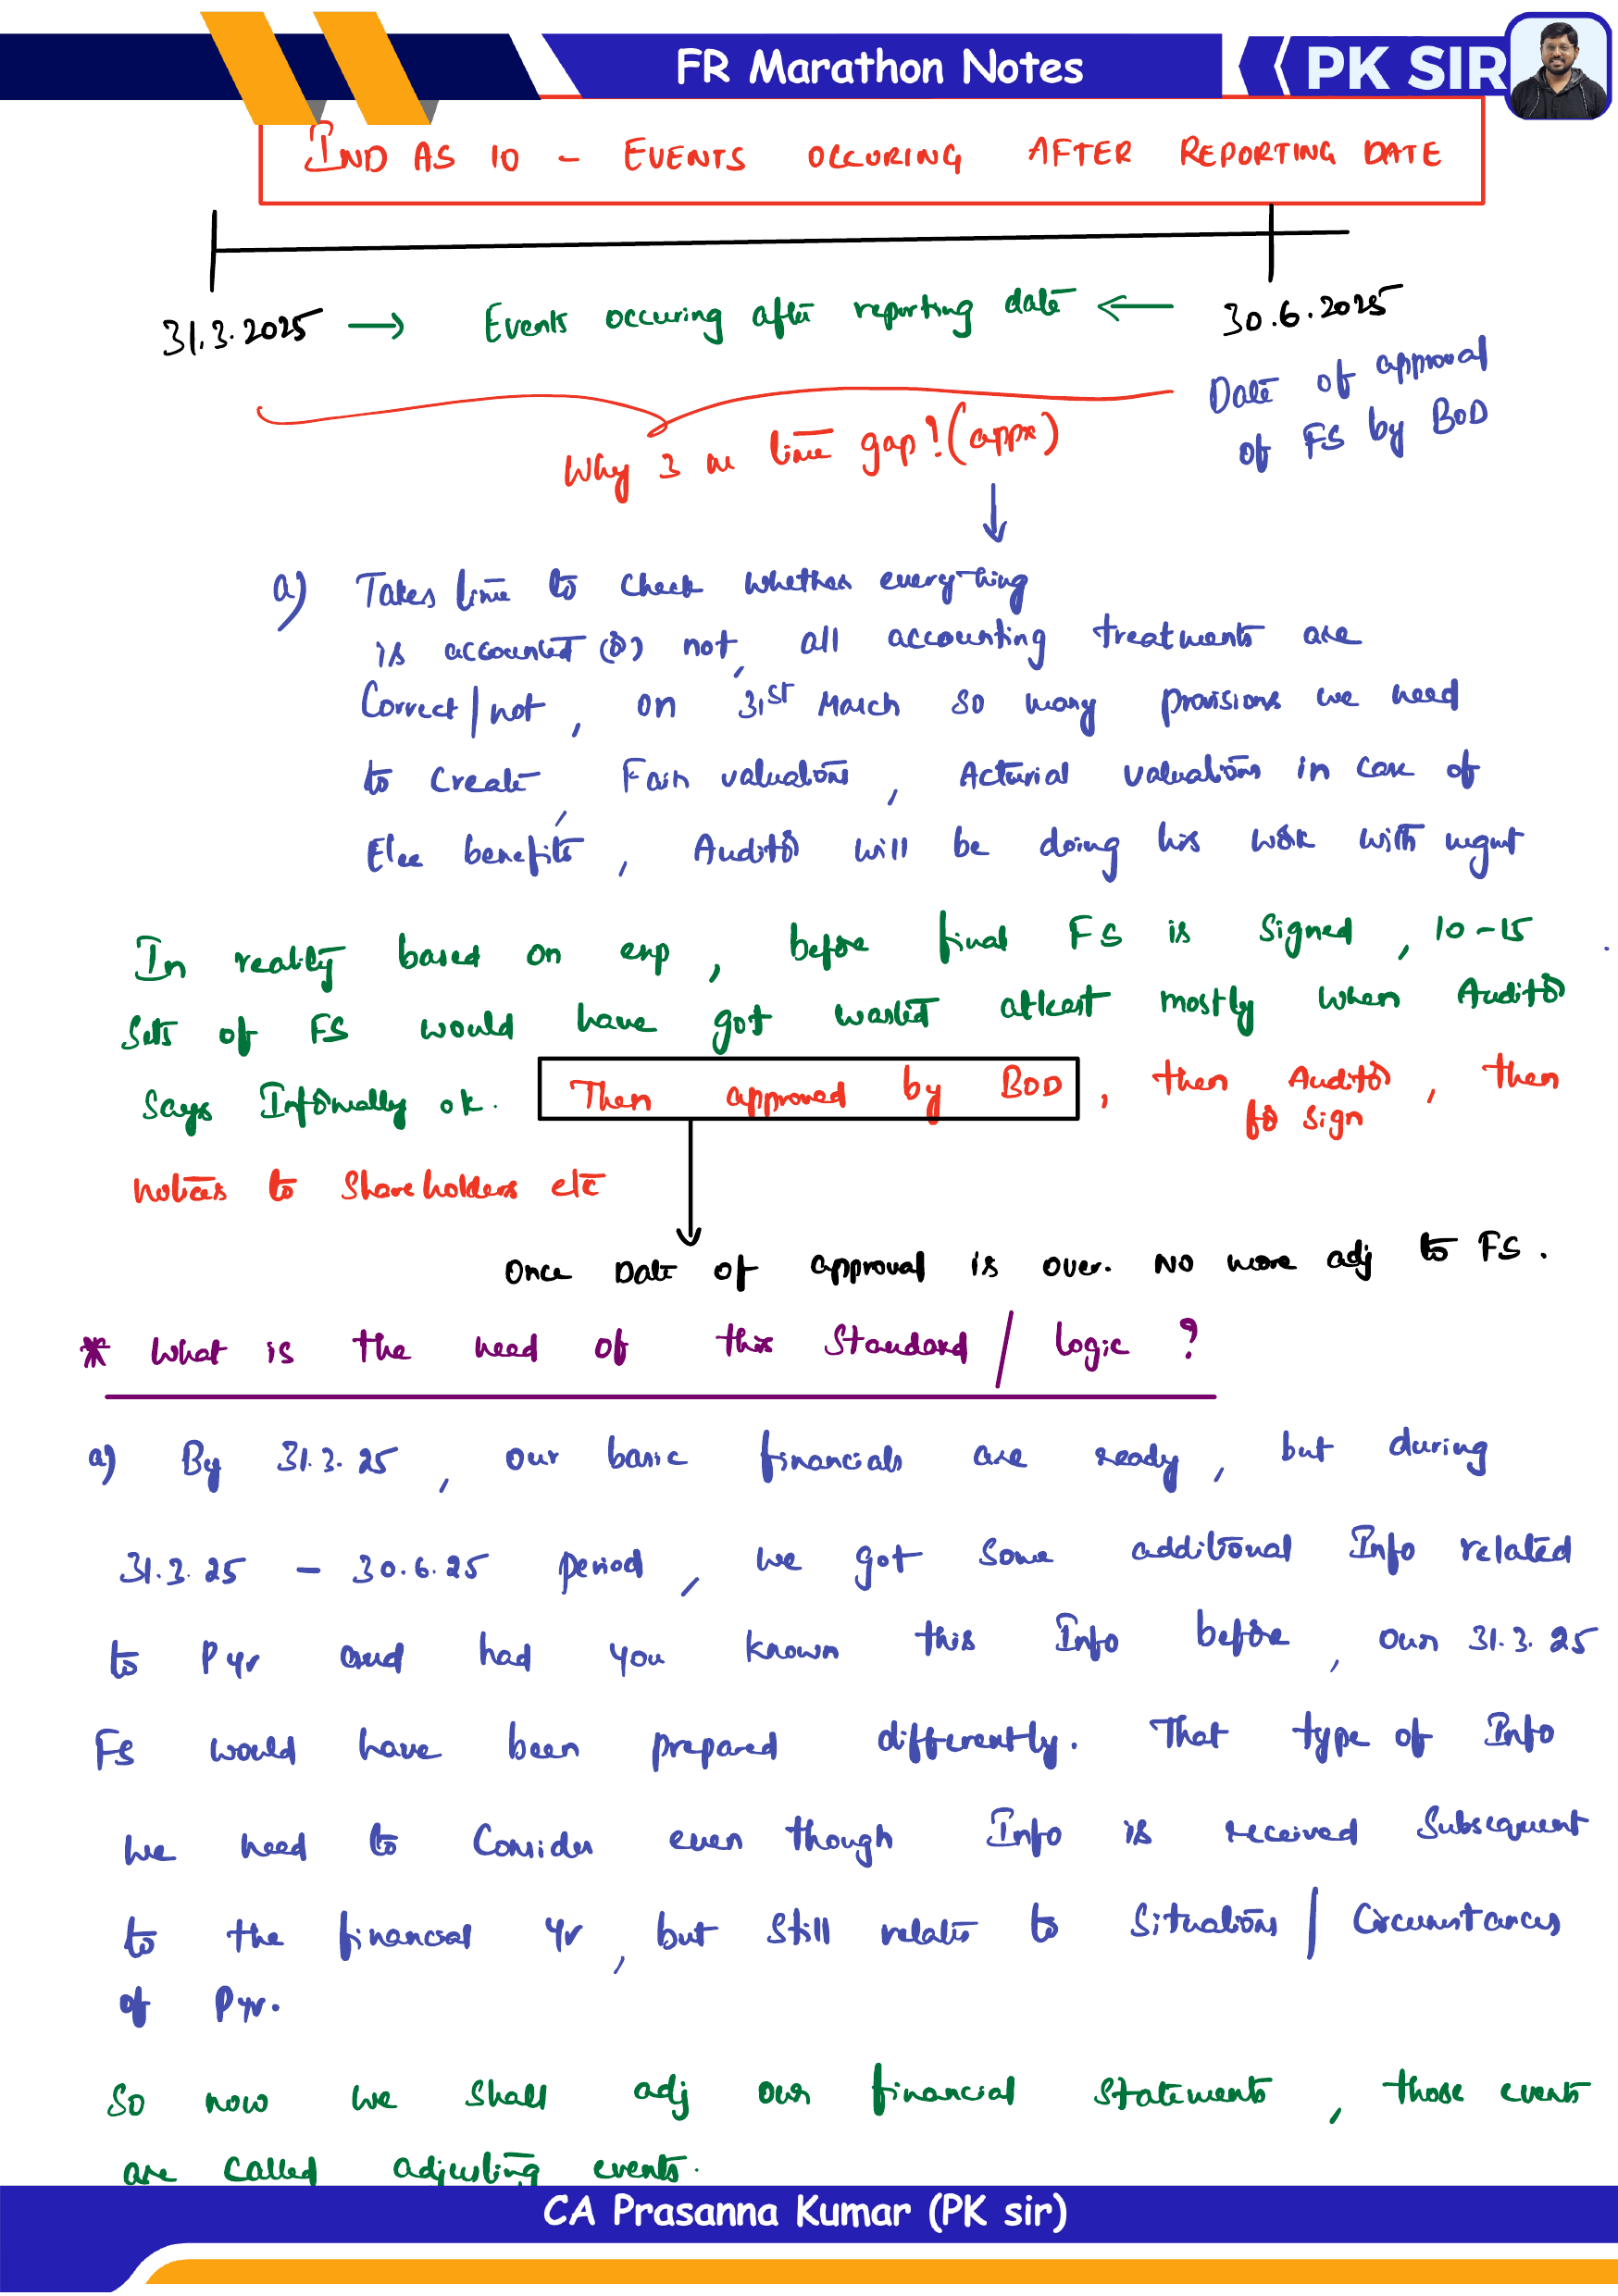 FR Marathon Notes
PK SIR
IND AS 10 - EVENTS OCCURING AFTER REPORTING DATE
31.3.2025 → Events occuring after reporting date ← 30.6.2025
Date of approval
of FS by BOD
Why 3 m time gap? (appx)
a) Takes time to check whether everything
is accounted (or) not, all accounting treatments are
Correct/not, on 31st March so many provisions we need
to create, Fair valuations, Acturial valuations in case of
Elee benefits, Auditor will be doing his work with mgmt
In reality based on exp, before final FS is signed, 10-15
sets of FS would have got wasted atleast mostly when Auditor
says Informally ok. Then approved by BOD, then Auditor, then
for sign
notices to Shareholders etc
Once Date of approval is over. No more adj to FS.
* What is the need of this Standard / logic ?
a) By 31.3.25, our basic financials are ready, but during
31.3.25 - 30.6.25 period, we got some additional Info related
to Pyr and had you known this Info before, our 31.3.25
FS would have been prepared differently. That type of Info
we need to Consider even though Info is received Subsequent
to the financial yr, but still relate to Situations / Circumstances
of Pyr.
So now we shall adj our financial statements, those events
are called adjusting events.
CA Prasanna Kumar (PK sir)